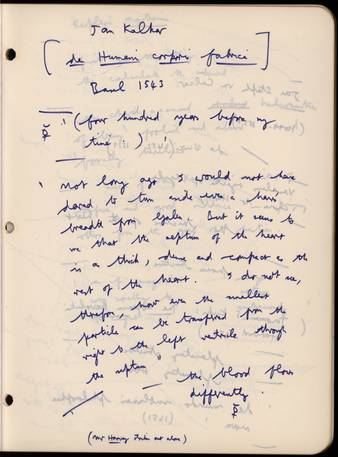 Jan Kalkar
[de Humani corporis fabrica]
Basel 1543
! (four hundred years before my
time !! ) !
' Not long ago I would not have
dared to turn aside even a hair's
breadth from Galen. But it seems to
me that the septum of the heart
is as thick, dense and compact as the
rest of the heart. I do not see,
therefore, how even the smallest
particle can be transferred from the
right to the left ventricle through
the septum ' — the blood flows
differently.
(now Harvey